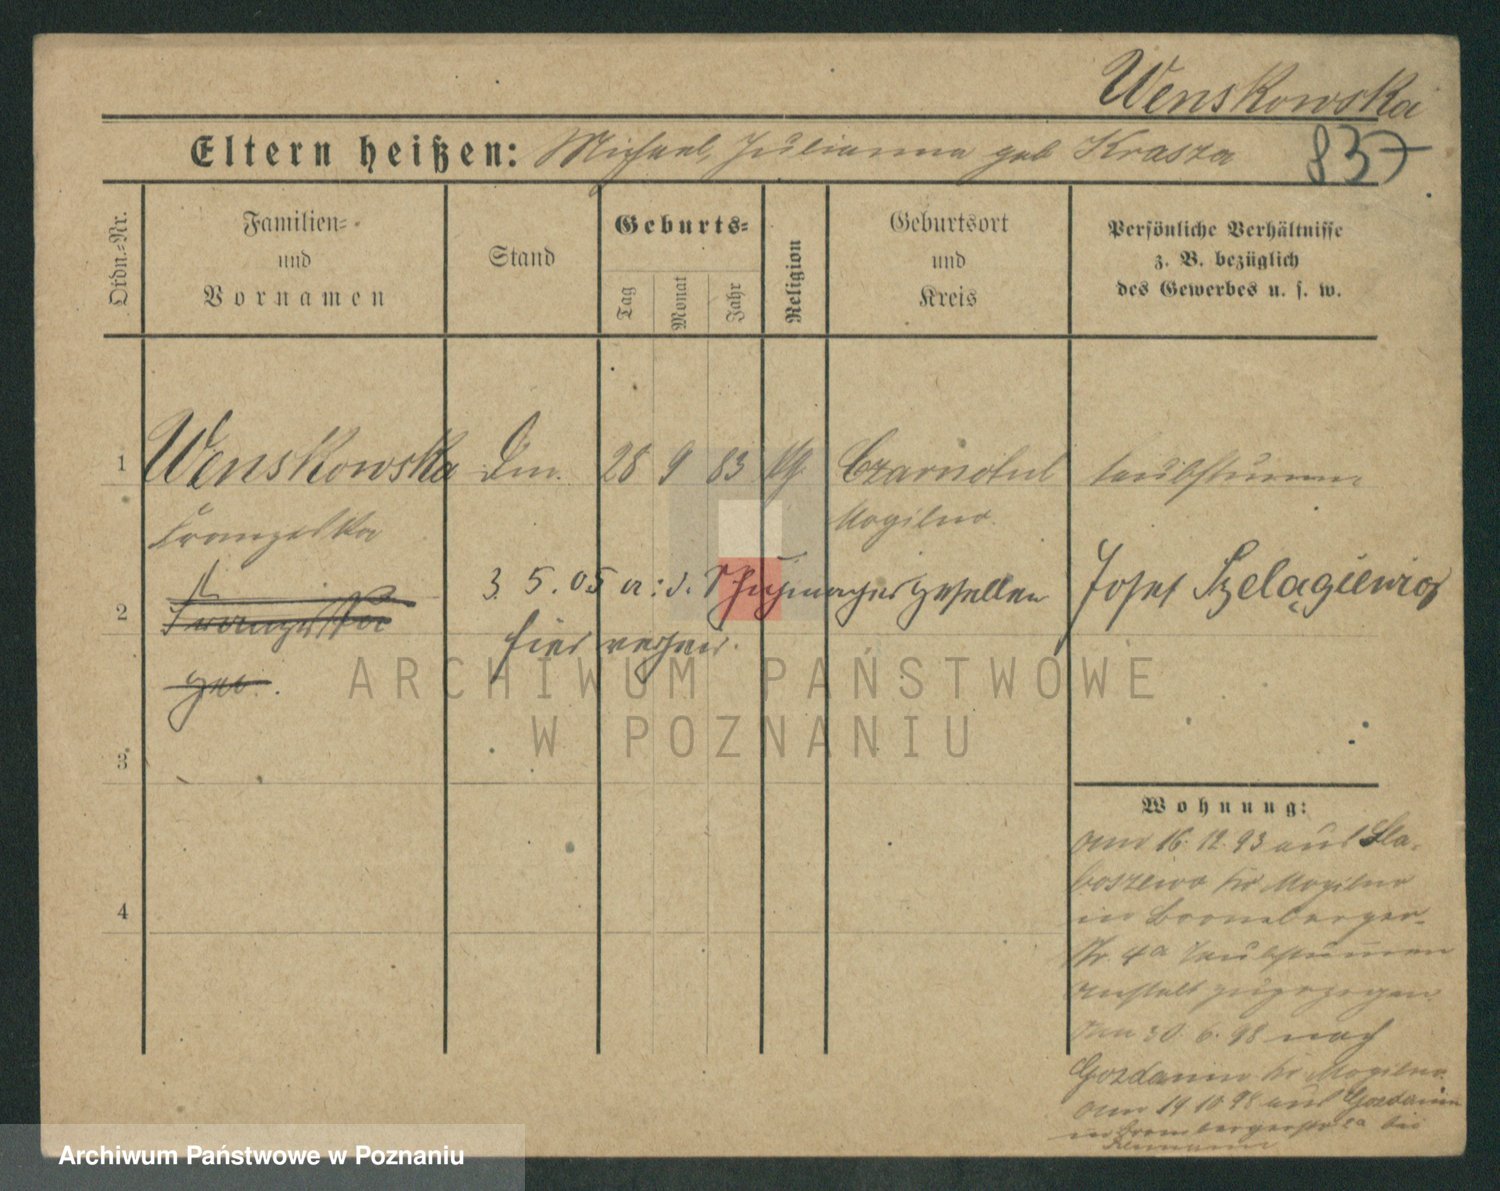 Wenskowska
837
Eltern heißen: Michael, Julianna geb Krasza
Ordn.-Nr.
Familien-
und
Vornamen
Stand
Geburts-
Tag
Monat
Jahr
Religion
Geburtsort
und
Kreis
Persönliche Verhältnisse
z. B. bezüglich
des Gewerbes u. s. w.
1 Wenskowska 28 9 83 Czarnotul taubstumm
Franziska Mogilno.
3. 5. 05 a: d. Schuhmachergesellen Josef Szelągiewicz
2
hier
geb.
ARCHIWUM PAŃSTWOWE
W POZNANIU
3
Wohnung:
am 16. 12. 93 aus Sla-
boszewo kr Mogilno
in Bromberger-
str. 4a Taubstummen
anstalt zugezogen
am 30. 6. 98 nach
Gozdanin kr Mogilno.
am 14 10 98 aus Gozdanin
in Brombergerstr bei
4
Archiwum Państwowe w Poznaniu